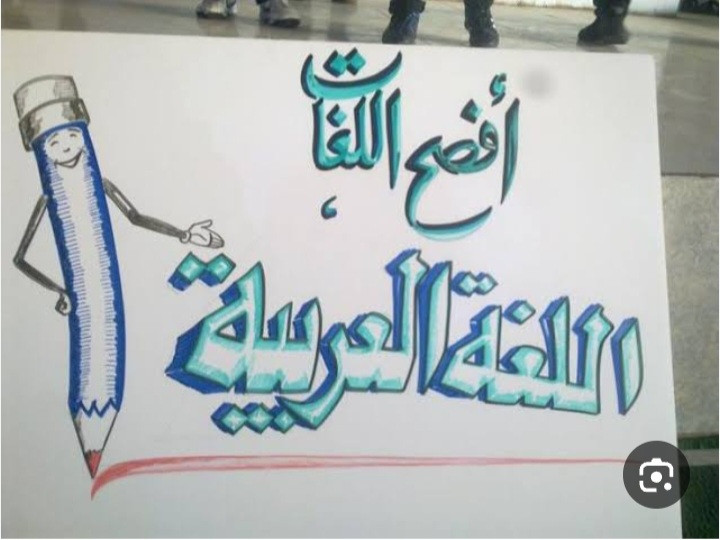 أفصح اللغات
،
اللغة العربية